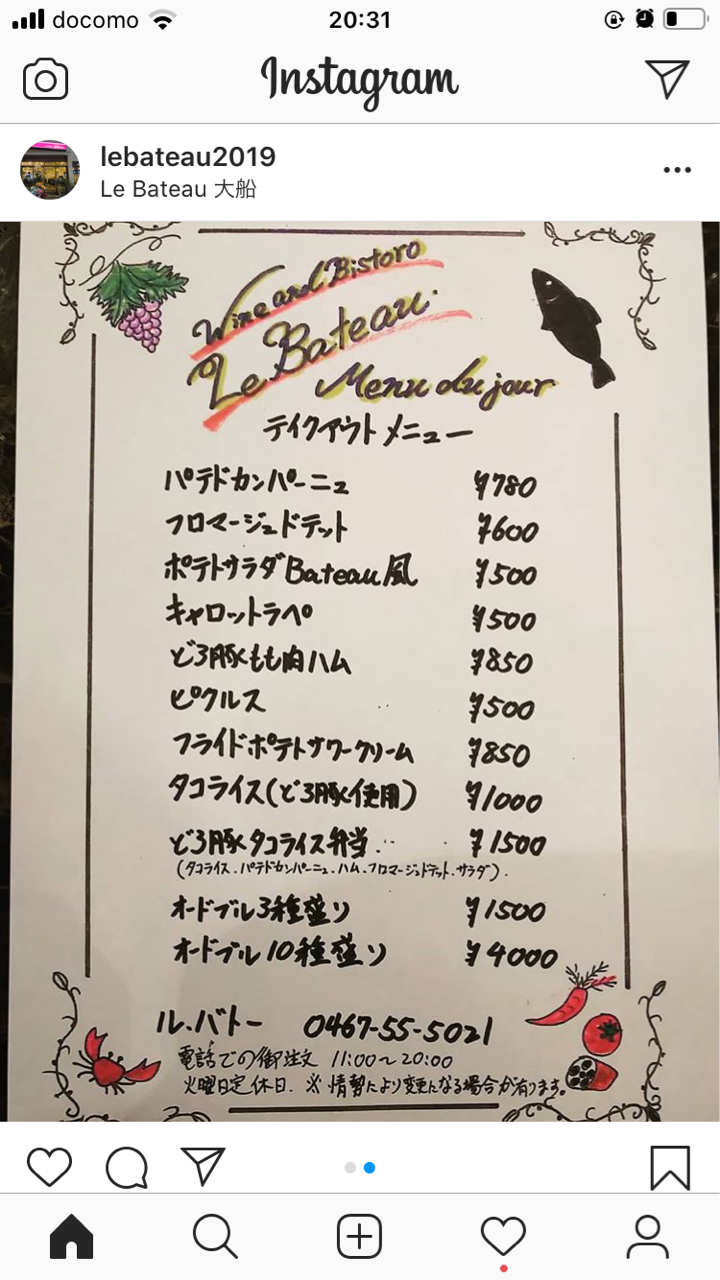 docomo
20:31
Instagram
lebateau2019
Le Bateau 大船
Wine and Bistoro
Le Bateau.
Menu du jour
テイクアウトメニュー
パテドカンパーニュ ¥780
フロマージュドテット ¥600
ポテトサラダBateau風 ¥500
キャロットラペ ¥500
どろ豚もも肉ハム ¥850
ピクルス ¥500
フライドポテトサワークリーム ¥850
タコライス(どろ豚使用) ¥1000
どろ豚タコライス弁当 ¥1500
(タコライス.パテドカンパーニュ.ハム.フロマージュドテット.サラダ).
オードブル3種盛り ¥1500
オードブル10種盛り ¥4000
ル.バトー 0467-55-5021
電話での御注文 11:00~20:00
火曜日定休日. ※情勢により変更になる場合が有ります。